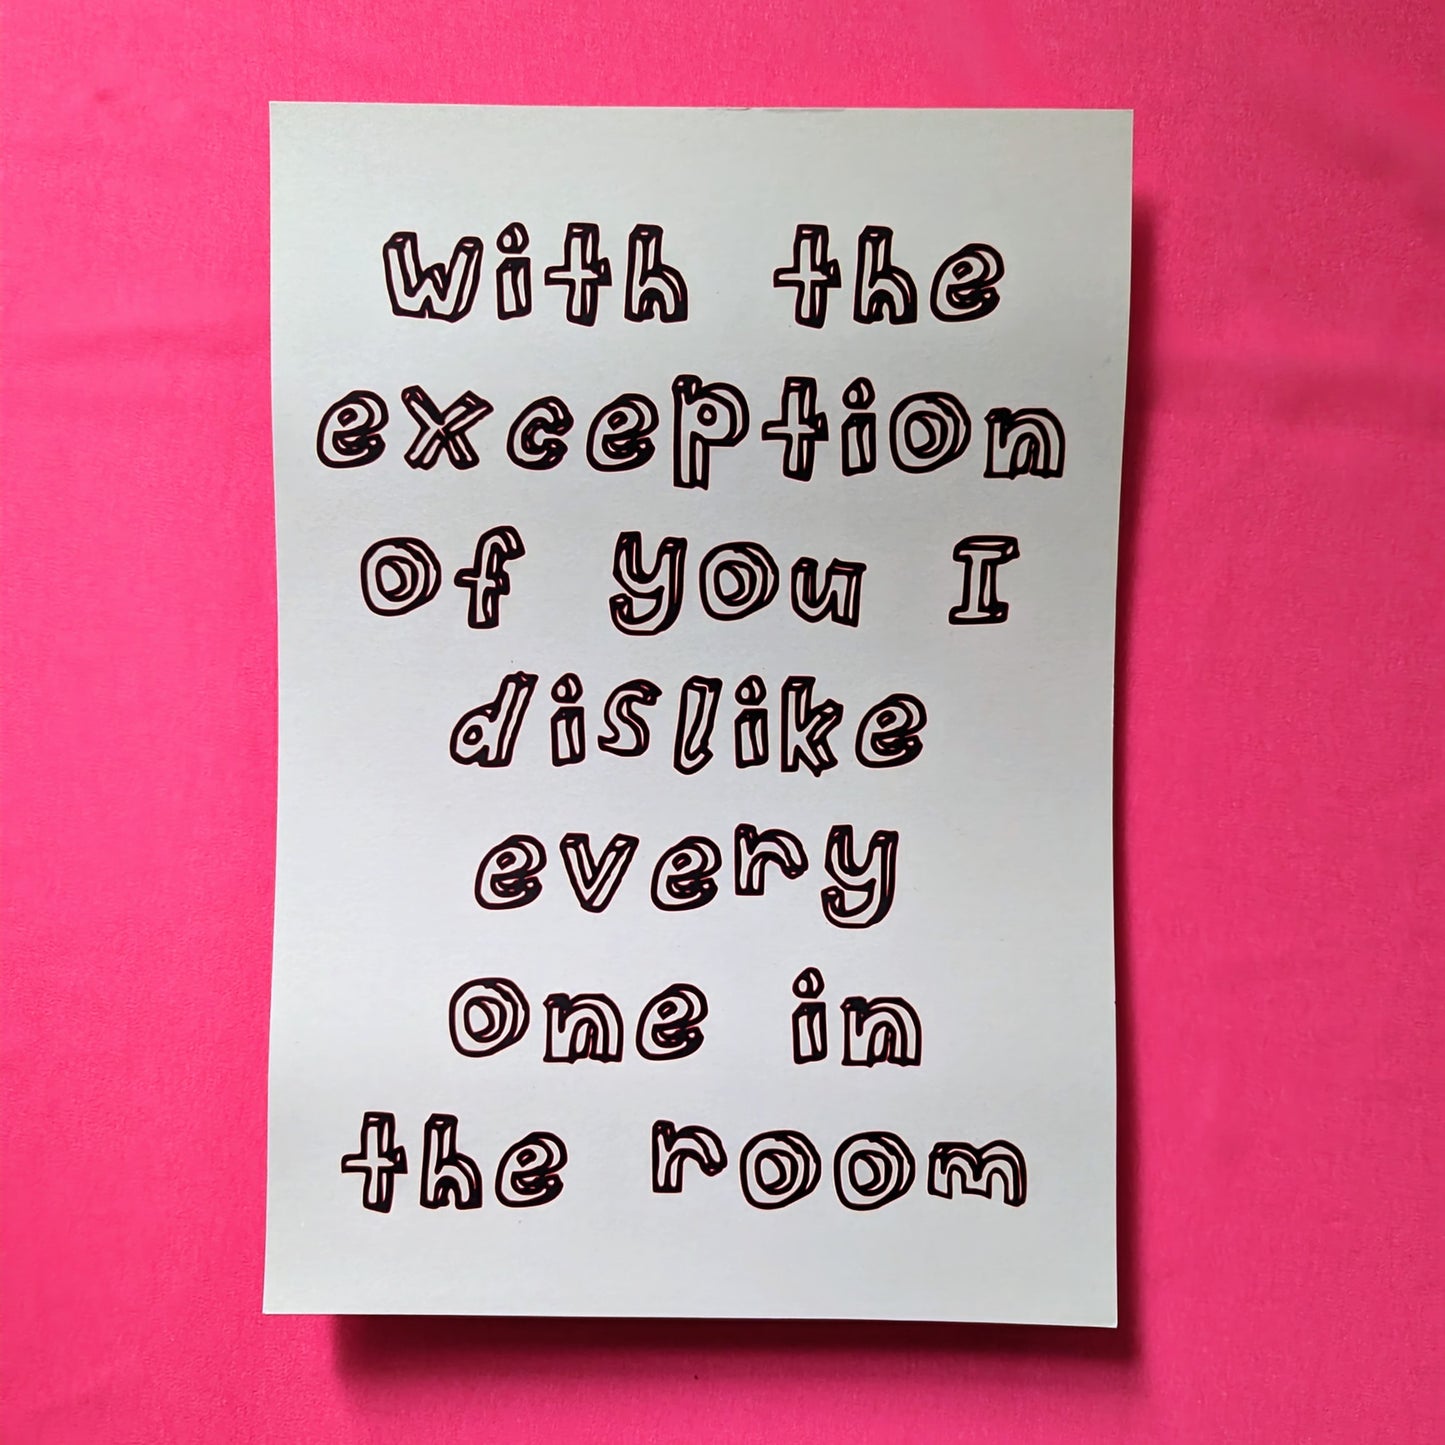 with the
exception
of you I
dislike
every
one in
the room